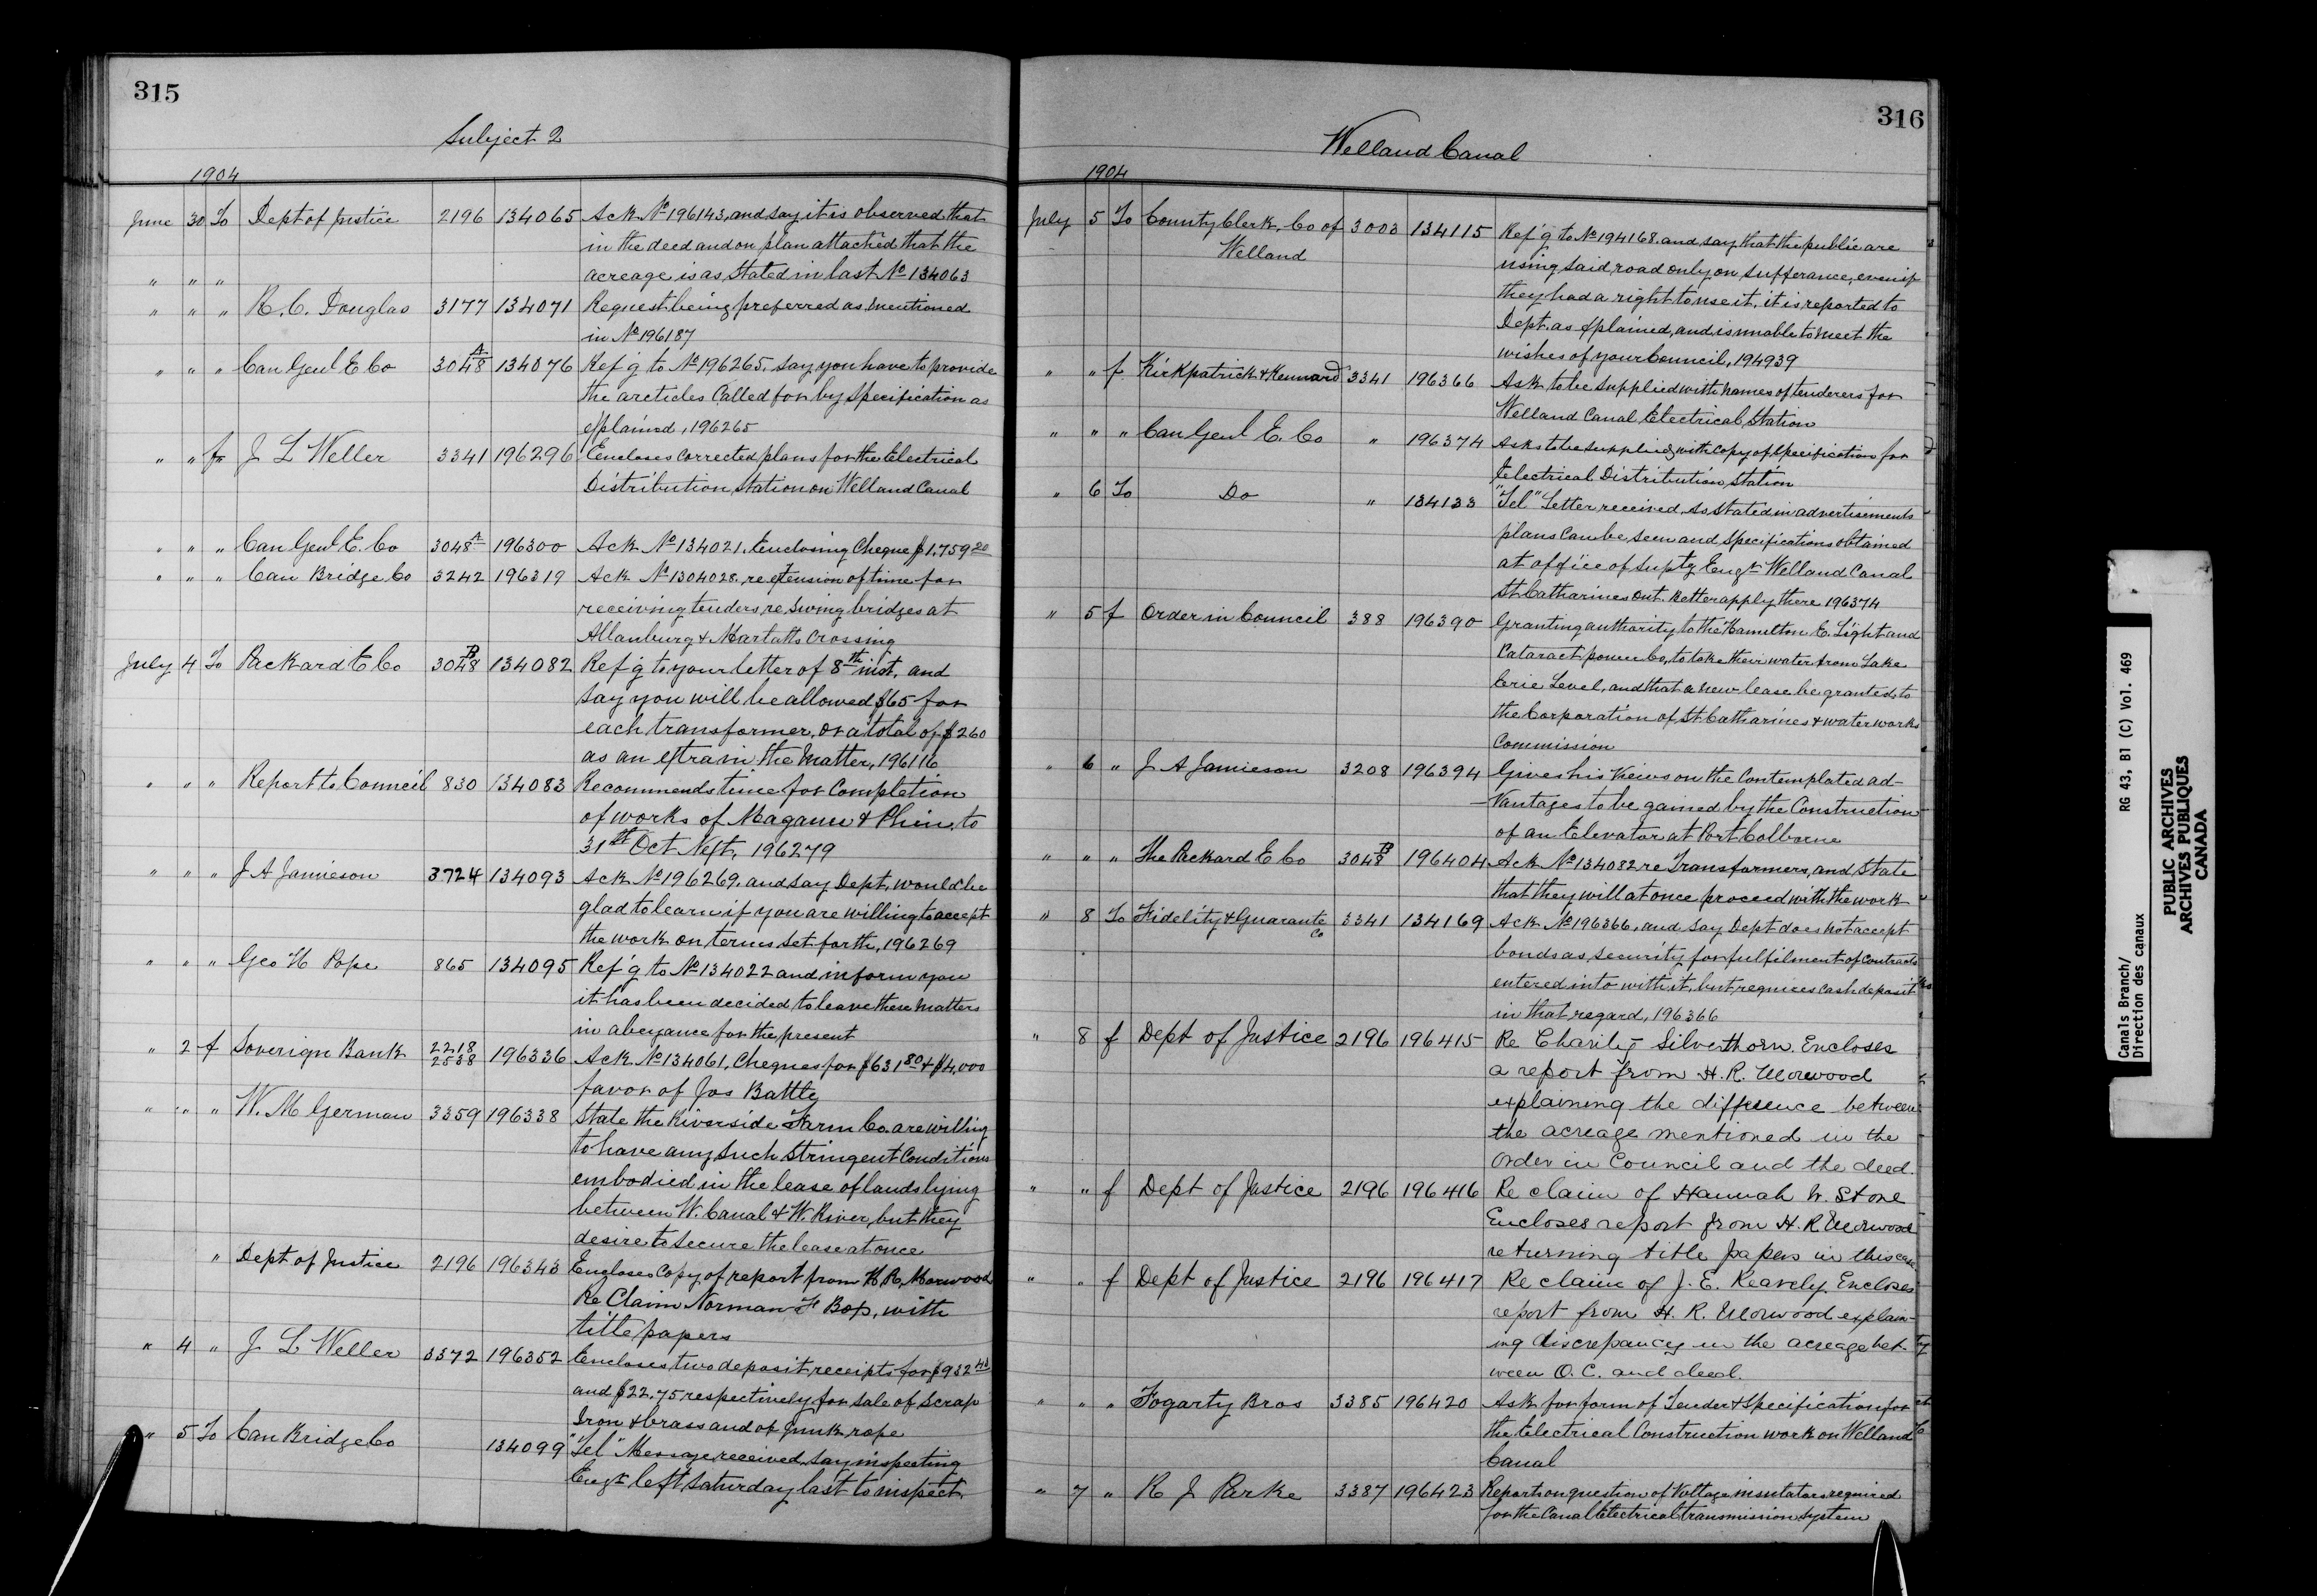 315
Subject 2
1904
June 30 To Dept of Justice 2196 134065 Ack No 196143, and say it is observed that
in the deed and on plan attached that the
" " " acreage is as stated in last No 134063
" " " R. C. Douglas 3177 134071 Request being preferred as mentioned
in No 196187
" " " Can Genl E Co 3048 A 134076 Ref'g to No 196265, say you have to provide
the articles called for by specification as
explained, 196265
" " f J L Weller 3341 196296 Encloses corrected plans for the Electrical
Distribution Station on Welland Canal
" " " Can Genl E. Co 3048 A 196300 Ack No 134021, Enclosing Cheque $1,759 20
" " " Can Bridge Co 3242 196319 Ack No 1304028, re extension of time for
receiving tenders, re swing bridges at
Allanburg & Marlatts Crossing
July 4 To Packard E Co 3048 B 134082 Ref'g to your letter of 8th inst, and
say you will be allowed $65 for
each transformer, or a total of $260
as an extra in the matter, 196116
" " " Report to Council 830 134083 Recommends time for Completion
of works of Magann & Phin, to
31st Oct Next, 196279
" " " J A Jamieson 3724 134093 Ack No 196269, and say Dept, would be
glad to learn if you are willing to accept
the work on terms set forth, 196269
" " " Geo H Pope 865 134095 Ref'g to No 134022 and inform you
it has been decided to leave these matters
in abeyance for the present
" 2 f Soverign Bank 2218 2538 196336 Ack No 134061, Cheques for $631 80 & $4,000
favor of Jos Battle
" " " W. M German 3359 196338 State the Riverside Farm Co. are willing
to have any such stringent Conditions
embodied in the lease of lands lying
between W. Canal & W. River, but they
desire to secure the lease at once
" Dept of Justice 2196 196343 Encloses Copy of report from H R, Morwood
Re Claim Norman F Box, with
title papers
" 4 " J L Weller 3372 196352 Encloses two deposit receipts for $932 43
and $22.75 respectively for sale of scrap
Iron & brass and of Junk rope
" 5 To Can Bridge Co 134099 "Tel" Message received, say inspecting
Engr left Saturday last to inspect.
316
Welland Canal
1904
July 5 To County Clerk, Co of 3003 134115 Ref'g to No 194168. and say that the public are
Welland using said road only on sufferance, even if
they had a right to use it, it is reported to
Dept. as explained, and is unable to meet the
wishes of your Council, 194939
" " f Kirkpatrick & Kennard 3341 196366 Ask to be supplied with names of tenderers for
Welland Canal Electrical Station
" " " Can Genl E. Co " 196374 Asks to be supplied with copy of specification for
Electrical Distribution Station
" 6 To Do " 134133 "Tel" Letter received, as stated in advertisements
plans can be seen and specifications obtained
at office of Suptg Engr Welland Canal
St. Catharines Ont. Better apply there 196374
" 5 f Order in Council 388 196390 Granting authority to the Hamilton E. Light and
Cataract power Co, to take their water from Lake
Erie Level, and that a new lease be granted to
the Corporation of St. Catharines & water works
Commission
" 6 " J. A Jamieson 3208 196394 Gives his views on the Contemplated ad-
-vantages to be gained by the Construction
of an Elevator at Port Colborne
" " " The Packard E Co 3048 B 196404 Ack No 134082 re Transformers, and state
that they will at once proceed with the work
" 8 To Fidelity & Guarante Co 3341 134169 Ack No 196366, and say Dept does not accept
bonds as, security for fulfilment of contracts
entered into with it, but requires cash deposit
in that regard, 196366
" 8 f Dept of Justice 2196 196415 Re Charity Silverthorn. Encloses
a report from H. R. Morwood
explaining the difference between
the acreage mentioned in the
Order in Council and the deed.
" " f Dept of Justice 2196 196416 Re claim of Hannah W. Stone
Encloses report from H. R Morwood
returning title papers in this case
" " f Dept of Justice 2196 196417 Re claim of J. E. Kearely Encloses
report from H. R. Morwood explain-
ing discrepancy in the acreage bet-
ween O. C. and deed.
" " " Fogarty Bros 3385 196420 Ask for form of Tender & specification for
the Electrical Construction work on Welland
Canal
" 7 " R J Parke 3387 196423 Report on question of Voltage insulators required
for the Canal Electrical transmission system
Canals Branch/ RG 43, B1 (C) Vol. 469
Direction des canaux
PUBLIC ARCHIVES
ARCHIVES PUBLIQUES
CANADA